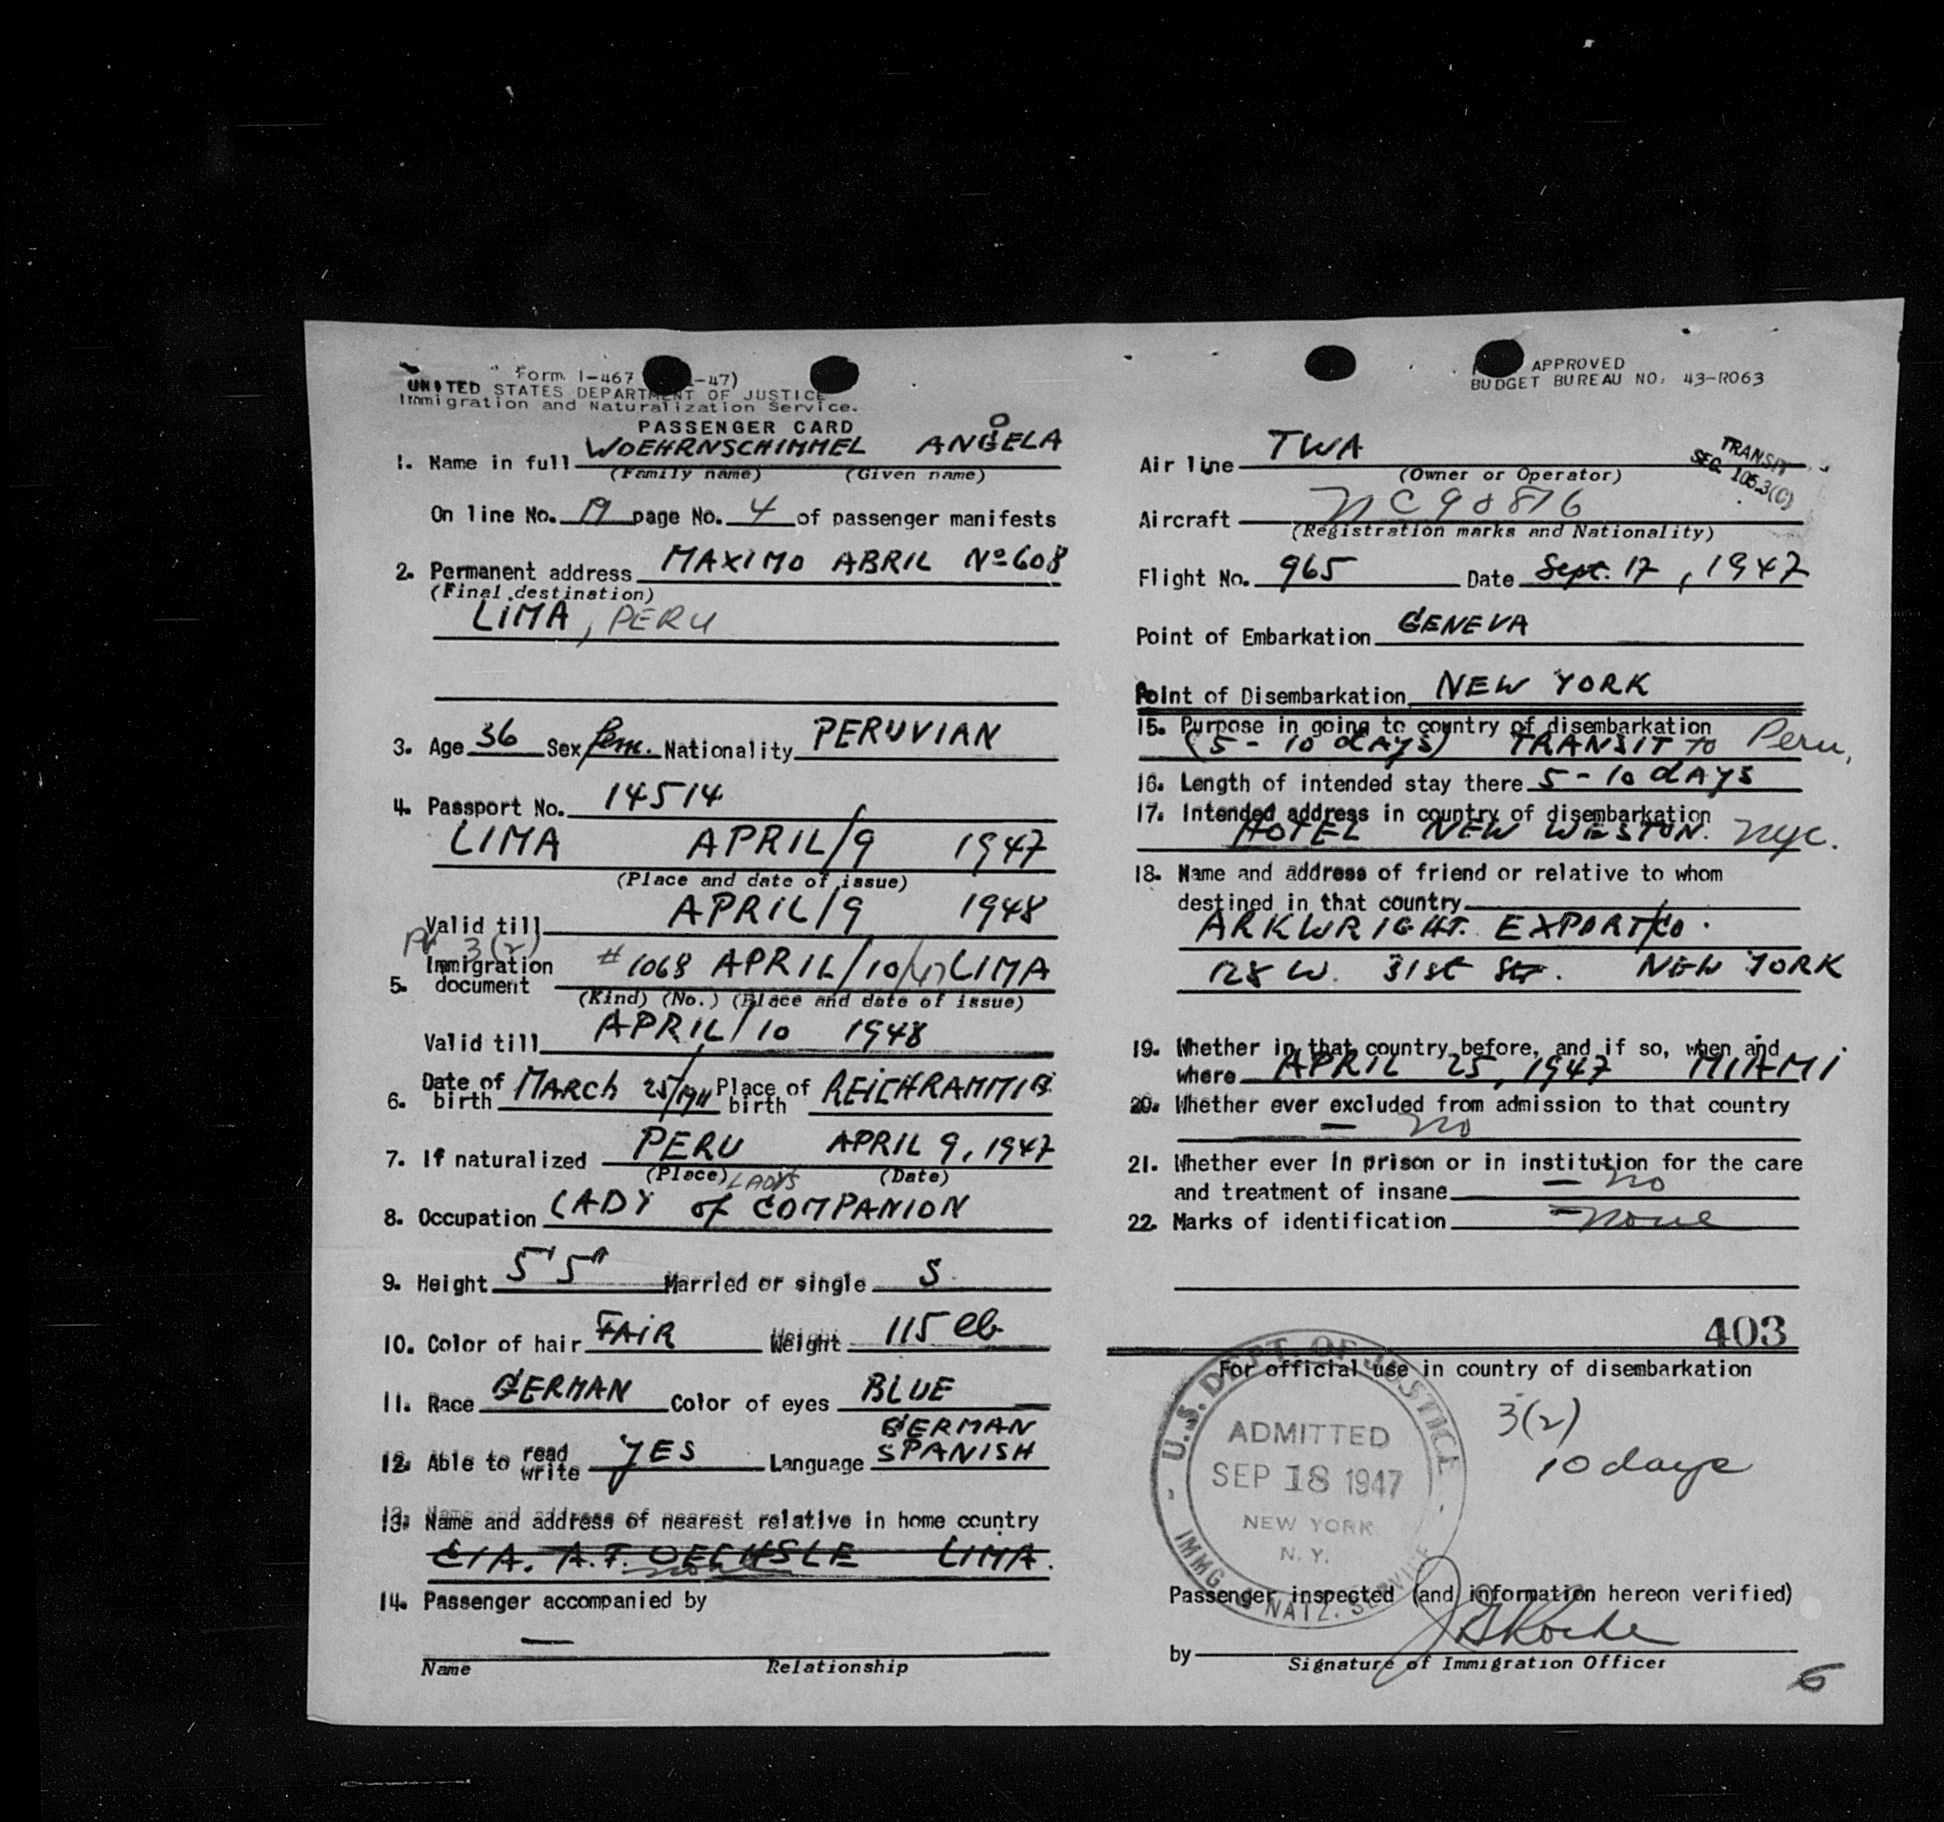 Form I-467 -47)
UNITED STATES DEPARTMENT OF JUSTICE
Immigration and Naturalization Service.
PASSENGER CARD
1. Name in full WOEHRNSCHIMMEL ANGELA
(Family name) (Given name)
On line No. 19 page No. 4 of passenger manifests
2. Permanent address MAXIMO ABRIL Nº 608
(Final destination)
LIMA, PERU
3. Age 36 Sex fem. Nationality PERUVIAN
4. Passport No. 14514
LIMA APRIL/9 1947
(Place and date of issue)
Valid till APRIL/9 1948
PV 3(2)
5. Immigration document #1068 APRIL/10/47 LIMA
(Kind) (No.) (Place and date of issue)
Valid till APRIL/10 1948
6. Date of birth MARCH 25/1911 Place of birth REICHRAMMIB
7. If naturalized PERU APRIL 9, 1947
(Place) (Date)
LADYS
8. Occupation LADY of COMPANION
9. Height 5'5" Married or single S
10. Color of hair FAIR Weight 115 lb
11. Race GERMAN Color of eyes BLUE
12. Able to read write YES Language GERMAN SPANISH
13. Name and address of nearest relative in home country
CIA. A.F. OECHSLE LIMA.
none
14. Passenger accompanied by
—
Name Relationship
APPROVED
BUDGET BUREAU NO. 43-R063
Air line TWA
(Owner or Operator)
TRANSIT
SEC. 105.3(C)
Aircraft NC90816
(Registration marks and Nationality)
Flight No. 965 Date Sept. 17, 1947
Point of Embarkation GENEVA
Point of Disembarkation NEW YORK
15. Purpose in going to country of disembarkation
(5-10 dAYS) TRANSIT to Peru,
16. Length of intended stay there 5-10 dAYS
17. Intended address in country of disembarkation
HOTEL NEW WESTON. NYC.
18. Name and address of friend or relative to whom
destined in that country
ARKWRIGHT. EXPORT/Co.
128 W. 31st Str. NEW YORK
19. Whether in that country before, and if so, when and
where APRIL 25, 1947 MIAMI
20. Whether ever excluded from admission to that country
— no
21. Whether ever in prison or in institution for the care
and treatment of insane — no
22. Marks of identification — none
403
For official use in country of disembarkation
U.S. DEPT. OF JUSTICE
ADMITTED
SEP 18 1947
NEW YORK
N. Y.
IMMG. NATZ. SERVICE
3(2)
10 days
Passenger inspected (and information hereon verified)
by
Signature of Immigration Officer
6